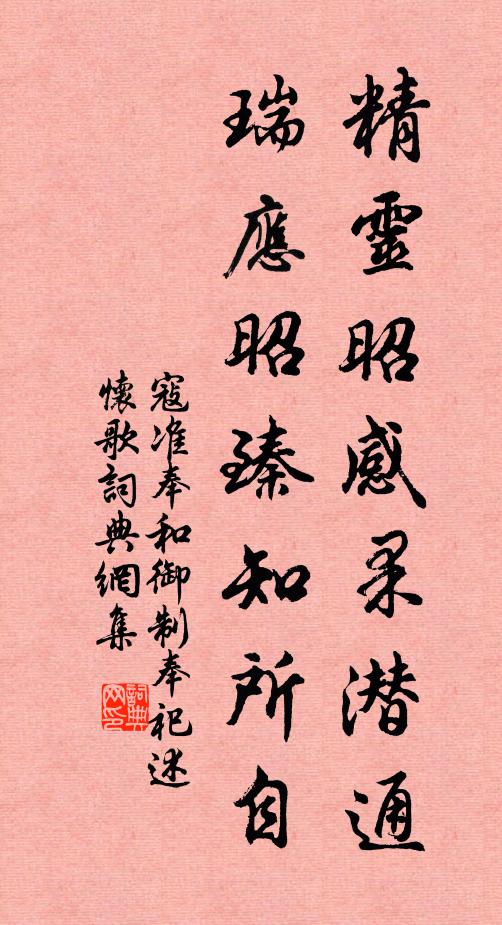 精靈昭感柔潜通
瑞應昭臻知所自
寇准奉和御制奉祀述
懷歌詞典網集
詞典网印